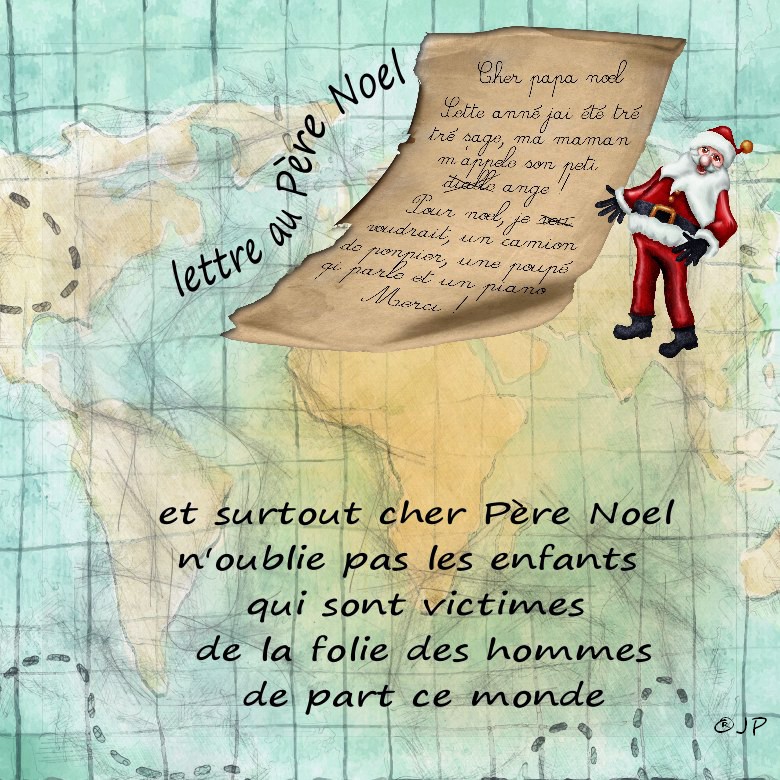 lettre au Père Noel
Cher papa noel
Cette anné jai été tré
tré sage, ma maman
m'appele son peti
diable ange
Pour noel, je veu
voudrait, un camion
de ponpier, une poupé
qi parle et un piano
Merci !
et surtout cher Père Noel
n'oublie pas les enfants
qui sont victimes
de la folie des hommes
de part ce monde
®JP